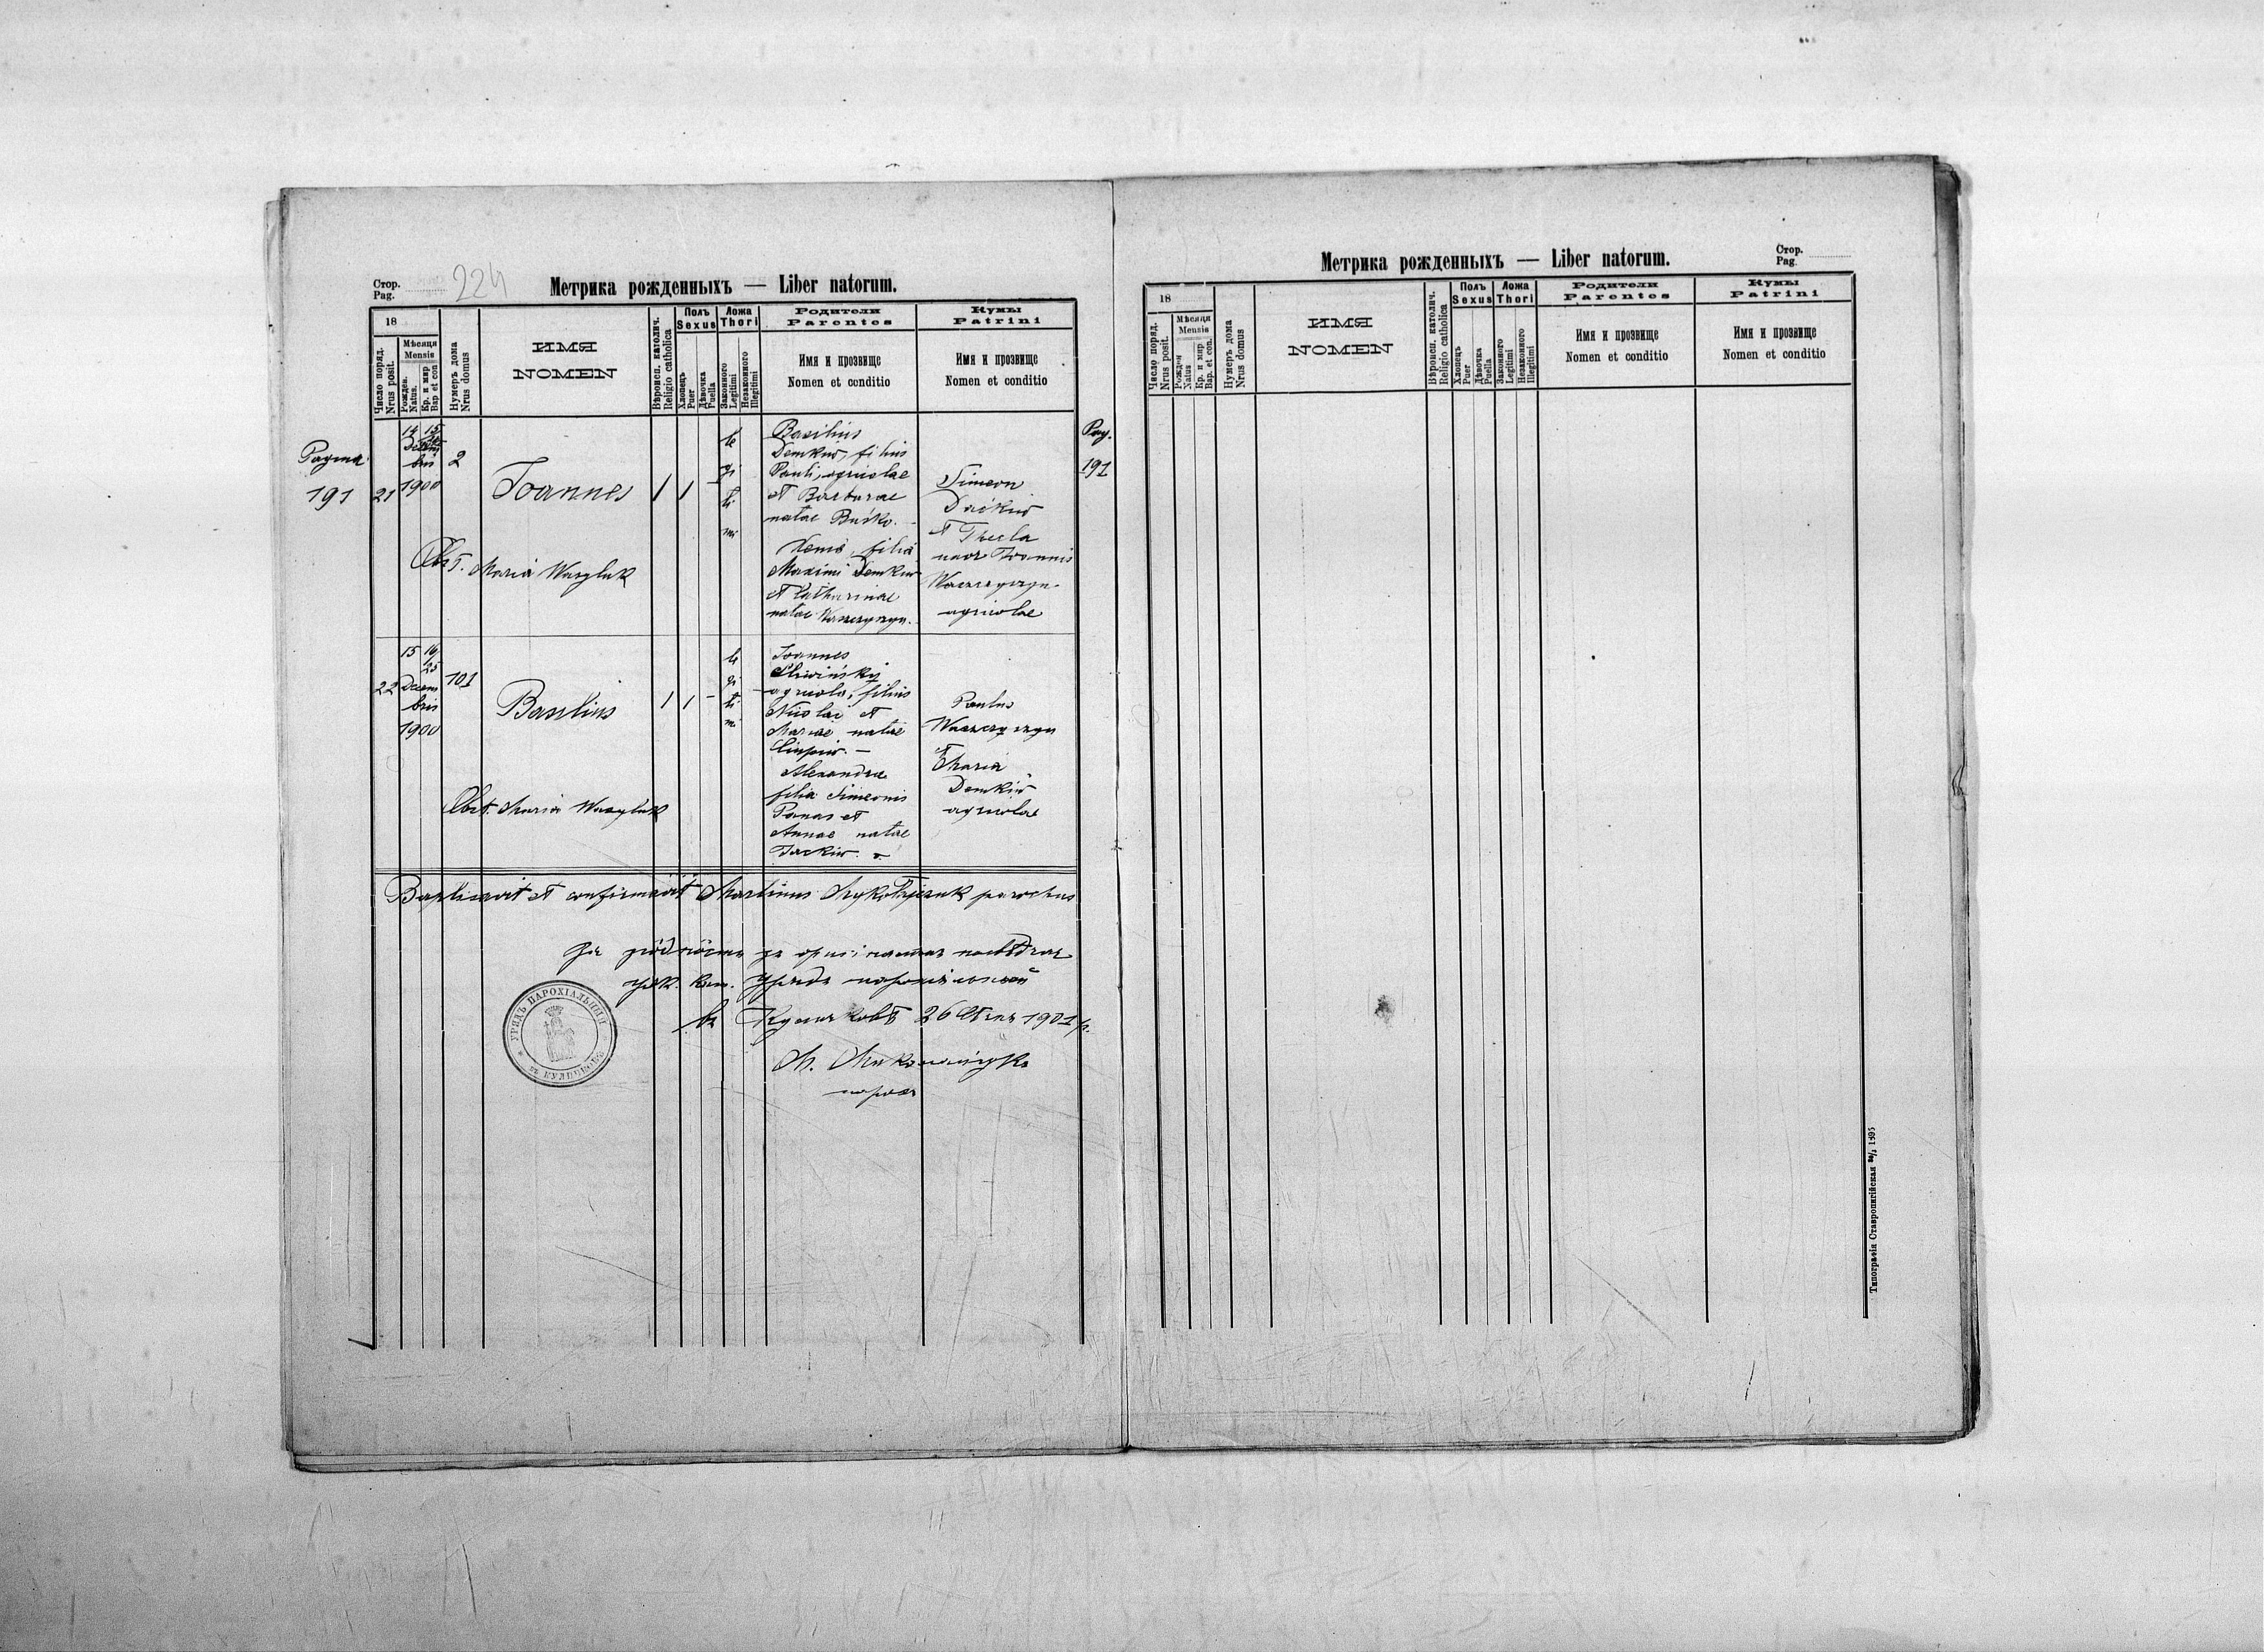 Стор.
Pag.
224
Метрика рожденныхъ — Liber natorum.
18
Число поряд.
Nrus posit.
Мѣсяця
Mensis
Рожден.
Natus.
Кр. и мир
Bap et con
Нумеръ дома
Nrus domus
ИМЯ
NOMEN
Вѣроисп. католич.
Religio catholica
Полъ
Sexus
Хлопецъ
Puer
Дѣвочка
Puella
Ложа
Thori
Законного
Legitimi
Незаконного
Illegitimi
Родители
Parentes
Имя и прозвище
Nomen et conditio
Кумы
Patrini
Имя и прозвище
Nomen et conditio
Pagina
191
21
14 15
Decem
bris
1900
2
Joannes
1 1
le
gi
ti
mi
Basilius
Demkiw, filius
Pauli, agricolae
et Barbarae
natae Buśko. —
Xenia, filia
Maximi Demkiw
et Catharinae
natae Waszczyszyn.
Simeon
Daćkiw
et Thecla
uxor Joannis
Waszczyszyn
agricolae
Obst. Maria Wasyluk
Pag.
191
22
15 16
25
Decem
bris
1900
101
Basilius
1 1 —
le
gi
ti
mi
Joannes
Śliwiński
agricola, filius
Nicolai et
Mariae natae
—
Alexandra
filia Simeonis
Panas et
Annae natae
Jackiw.
Paulus
Waszczyszyn
et
Maria
Demkiw
agricolae
Obst. Maria Wasyluk
Baptisavit et confirmavit Martinus parochus
За зъ
гр. к. Урядъ
въ Куличковѣ 26 1901 р.
М.
парох
УРЯДЪ ПАРОХІАЛЬНЫЙ
въ КУЛИЧКОВѢ
Метрика рожденныхъ — Liber natorum.
Стор.
Pag.
18
Число поряд.
Nrus posit.
Мѣсяця
Mensis
Рожден
Natus
Кр. и мир
Bap. et con.
Нумеръ дома
Nrus domus
ИМЯ
NOMEN
Вѣроисп. католич.
Religio catholica
Полъ
Sexus
Хлопецъ
Puer
Дѣвочка
Puella
Ложа
Thori
Законного
Legitimi
Незаконного
Illegitimi
Родители
Parentes
Имя и прозвище
Nomen et conditio
Кумы
Patrini
Имя и прозвище
Nomen et conditio
Типографія Ставропигійская 1895